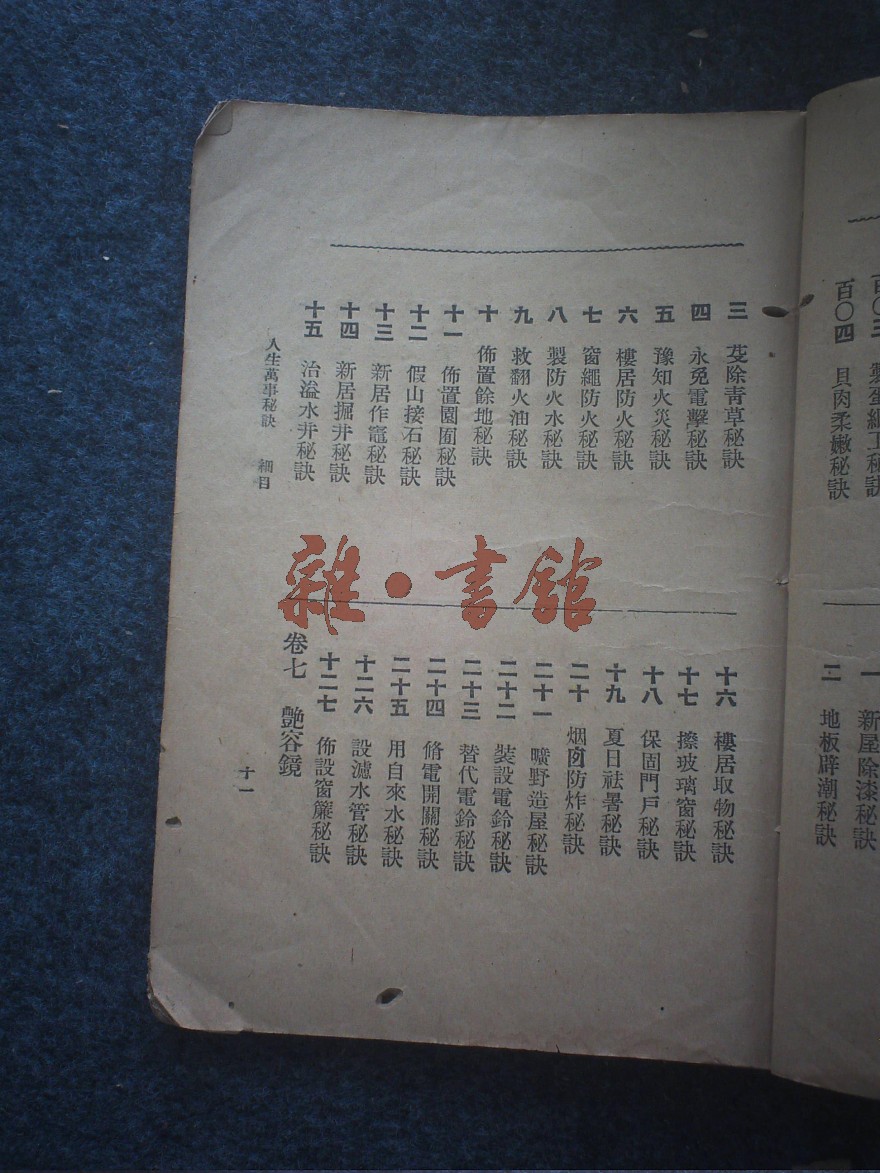 百〇三 製蛋細工秘訣
百〇四 貝肉柔嫩秘訣
一 新屋除漆秘訣
二 地板辟潮秘訣
三 芟除靑草秘訣
四 永免電擊秘訣
五 豫知火災秘訣
六 樓居防火秘訣
七 窗繩防火秘訣
八 製防火水秘訣
九 救翻火油秘訣
十 佈置餘地秘訣
十一 佈置園囿秘訣
十二 假山接石秘訣
十三 新居作竈秘訣
十四 新居掘井秘訣
十五 治溢水井秘訣
十六 樓居取物秘訣
十七 擦玻璃窗秘訣
十八 保固門戶秘訣
十九 夏日祛署秘訣
二十 烟囱防炸秘訣
二十一 曠野造屋秘訣
二十二 裝設電鈴秘訣
二十三 替代電鈴秘訣
二十四 脩電開關秘訣
二十五 用自來水秘訣
十二六 設濾水管秘訣
十二七 佈設窗簾秘訣
卷七 艷容鏡
人生萬事秘訣 細目
十一
雜·書館